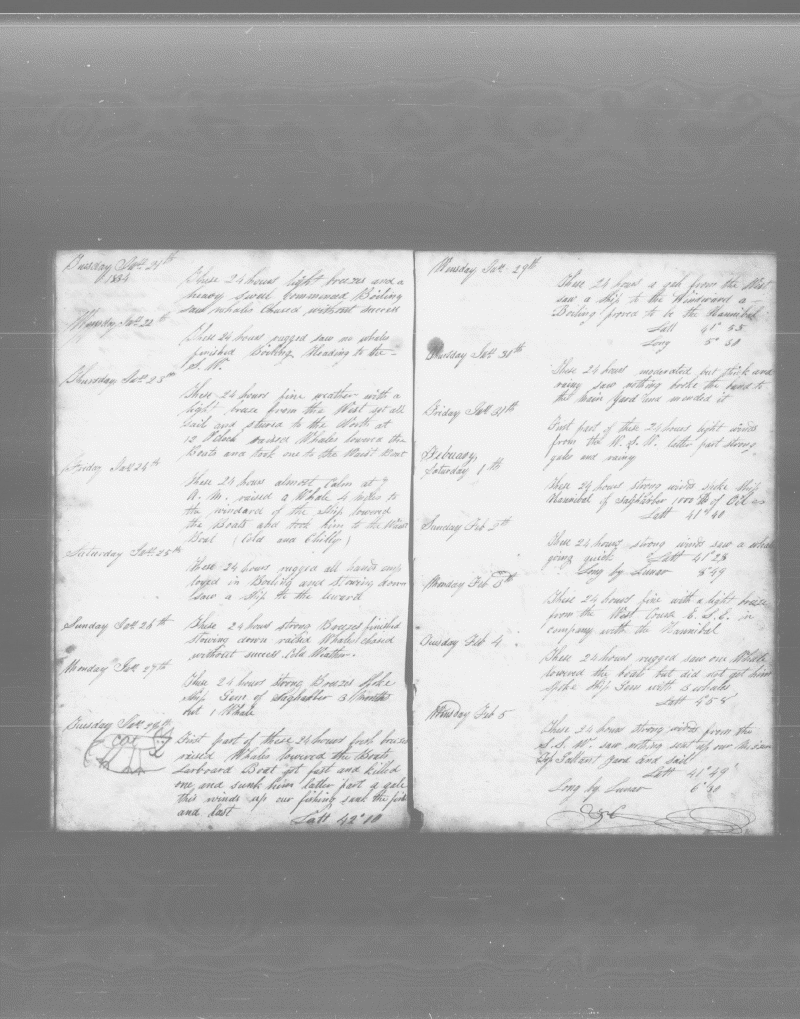 Tuesday Jan. 21th
1834
These 24 hours light breezes and a
heavy swell Commenced Boiling
saw whales Chased without success
Wensday Jan. 22th
These 24 hours rugged saw no whales
finished Boiling Heading to the
S. W.
Thursday Jan. 23th
These 24 hours fine weather with a
light breese from the West set all
Sail and stered to the North at
12 O'clock raised Whales lowered the
Boats and took one to the Waist Boat
Friday Jan. 24th
These 24 hours almost Calm at 7
A. M. raised a Whale 4 miles to
the windard of the ship lowered
the Boats and took him to the Waist
Boat (Cold and Chilly)
Saturday Jan. 25th
These 24 hours rugged all hands emp
loyed in Boiling and stowing down
saw a ship to the leward
Sunday Jan. 26th
These 24 hours strong Breezes finished
stowing down raised Whales chased
without success Cold Weather.
Monday Jan. 27th
These 24 hours strong Breezes spoke
ship Gem of Sagharbor 3 months
out 1 Whale
Tuesday Jan. 28th
First part of these 24 hours fresh breeses
raised Whales lowered the Boats
Larboard Boat got fast and killed
one and sunk him latter part a gale
this winds up our fishing sunk the first
and last
Latt 42° 10
Wensday Jan. 29th
These 24 hours a gale from the West
saw a ship to the Windward a
Boiling proved to be the Hannibal
Latt 41° 53
Long 5° 30
Thursday Jan. 30th
These 24 hours moderated but thick and
rainy saw nothing broke the band to
the Main Yard and mended it
Friday Jan. 31th
First part of these 24 hours light winds
from the W. S. W. latter part strong
gales and rainy
February
Saturday 1th
These 24 hours strong winds spoke ship
Hannibal of Sagharbor 1000 Bb of Oil
Latt 41° 40
Sunday Feb 2th
These 24 hours strong winds saw a whale
going quick Latt 41° 23
Long by Lunar 3° 49
Monday Feb 3th
These 24 hours fine with a light breese
from the West Course E. S. E. in
company with the Hannibal
Tuesday Feb 4
These 24 hours rugged saw one Whale
lowered the boats but did not get him
spoke ship Gem with 3 whales
Wensday Feb 5
These 24 hours strong winds from the
S. S. W. saw nothing sent up our Main
Top Gallant yard and sail
Latt 41° 49'
Long by Lunar 6° 30